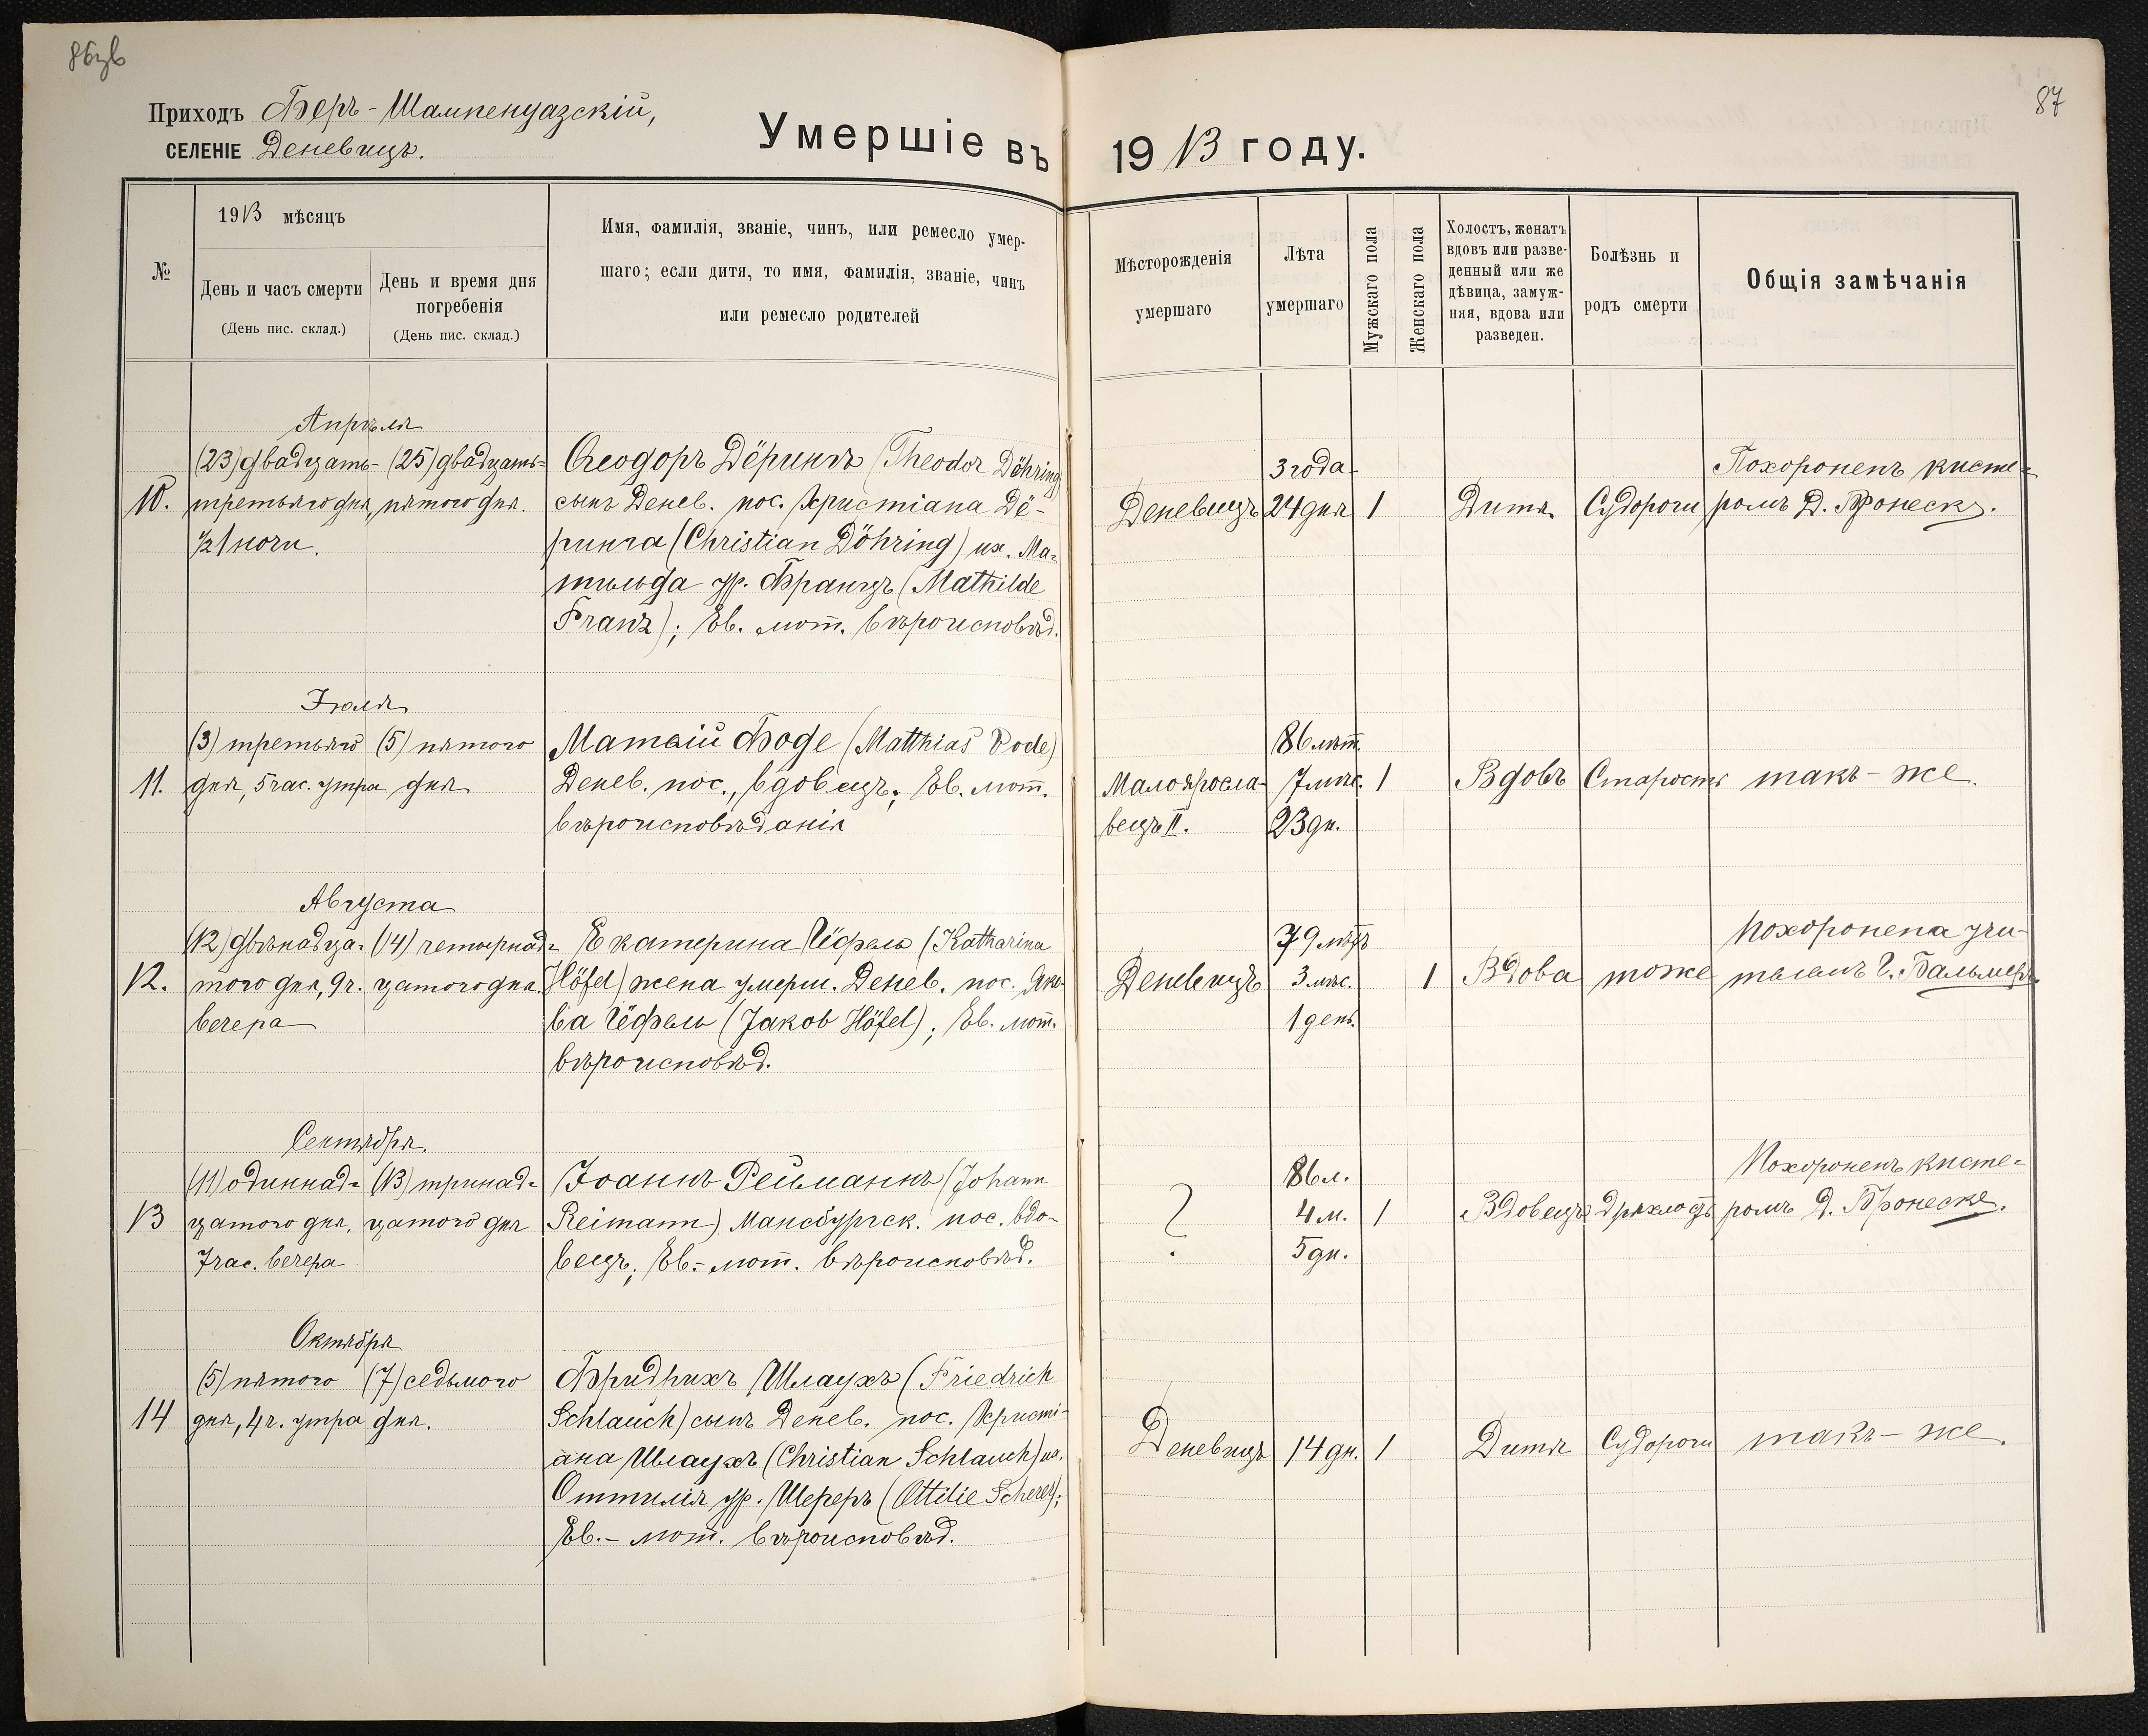 86об
87
Приходъ Феръ-Шампенуазскій,
СЕЛЕНІЕ Деневицъ.
Умершіе въ
1913 году.
№
1913 мѣсяцъ
День и часъ смерти
(День пис. склад.)
День и время дня
погребенія
(День пис. склад.)
Имя, фамилія, званіе, чинъ, или ремесло умер-
шаго; если дитя, то имя, фамилія, званіе, чинъ
или ремесло родителей
Мѣсторожденія
умершаго
Лѣта
умершаго
Мужскаго пола
Женскаго пола
Холостъ, женатъ
вдовъ или разве-
денный или же
дѣвица, замуж-
няя, вдова или
разведен.
Болѣзнь и
родъ смерти
Общія замѣчанія
Апрѣля
10.
(23) двадцать-
третьяго дня,
½1 ночи.
(25) двадцать-
пятого дня.
Ѳеодоръ Дёрингъ (Theodor Döhring
сынъ Денев. пос. Христіана Дё-
ринга (Christian Döhring) и ж. Ма-
тильда ур. Францъ (Mathilde
Franz); Ев. лют. вѣроисповѣд.
Деневицъ
3 года
24 дня
1
Дитя
Судороги
Похороненъ кисте-
ромъ Д. Фронеске.
Іюля
11.
(3) третьяго
дня, 5 час. утра
(5) пятого
дня
Матѳій Боде (Matthias Bode)
Денев. пос., вдовецъ; Ев. лют.
вѣроисповѣданія
Малояросла-
вецъ II.
86 лѣт.
7 мѣс.
23 дн.
1
Вдовъ
Старость
такъ-же.
Августа
12.
(12) двѣнадца-
того дня, 9 ч.
вечера
(14) четырнад-
цатого дня.
Екатерина Гёфель (Katharina
Höfel) жена умерш. Денев. пос. Яко-
ва Гёфель (Jakob Höfel); Ев. лют.
вѣроисповѣд.
Деневицъ
79 лѣтъ
3 мѣс.
1 день.
1
Вдова
тоже
Похоронена учи-
телемъ Г. Бальмеръ
Сентября.
13
(11) одиннад-
цатого дня,
7 час. вечера
(13) тринад-
цатого дня
Іоаннъ Рейманнъ (Johann
Reimann) Мансбургск. пос. вдо-
вецъ; Ев.- лют. вѣроисповѣд.
?
86 л.
4 м.
5 дн.
1
Вдовецъ
Дряхлость
Похороненъ кисте-
ромъ Д. Фронеске.
Октября
14
(5) пятого
дня, 4 ч. утра
(7) седьмого
дня.
Фридрихъ Шлаухъ (Friedrich
Schlauch) сынъ Денев. пос. Христі-
ана Шлаухъ (Christian Schlauch) и ж.
Оттилія ур. Шереръ (Ottilie Scherer);
Ев.- лют. вѣроисповѣд.
Деневицъ
14 дн.
1
Дитя
Судороги
такъ-же.